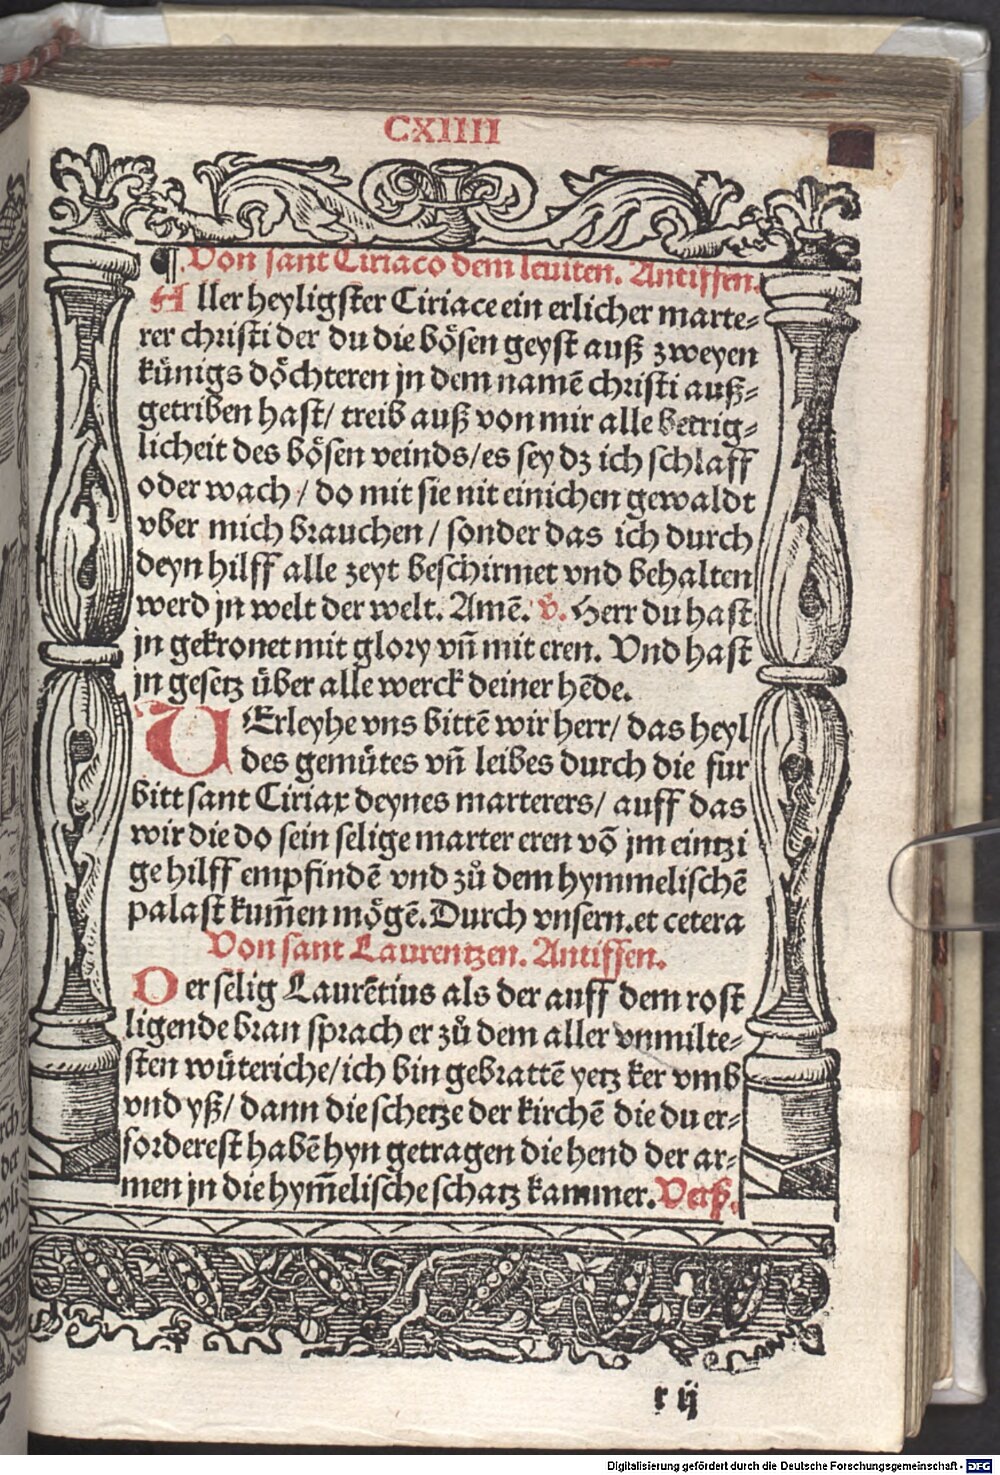 CXIIII
¶. Von sant Ciriaco dem leuiten. Antiffen.
Aller heyligster Ciriace ein erlicher marte⸗
rer christi der du die bösen geyst auß zweyen
künigs döchteren jn dem namē christi auß⸗
getriben hast/ treib auß von mir alle betrig⸗
licheit des bösen veinds/ es sey dz ich schlaff
oder wach / do mit sie nit einichen gewaldt
vber mich brauchen / sonder das ich durch
deyn hilff alle zeyt beschirmet vnd behalten
werd jn welt der welt. Amē. v̄. Herr du hast
jn gekronet mit glory vn̄ mit eren. Vnd hast
jn gesetz über alle werck deiner hēde.
VErleyhe vns bittē wir herr/ das heyl
des gemütes vn̄ leibes durch die fur
bitt sant Ciriax deynes marterers/ auff das
wir die do sein selige marter eren vō jm eintzi
ge hilff empfindē vnd zů dem hymmelischē
palast kum̄en mögē. Durch vnsern. et cetera
Von sant Laurentzen. Antiffen.
Der selig Laurētius als der auff dem rost
ligende bran sprach er zů dem aller vnmilte⸗
sten wüteriche/ ich bin gebrattē yetz ker vmb
vnd yß/ dann die schetze der kirchē die du er⸗
forderest habē hyn getragen die hend der ar⸗
men jn die hym̄elische schatz kammer. Verß.
r ij
Digitalisierung gefördert durch die Deutsche Forschungsgemeinschaft - DFG